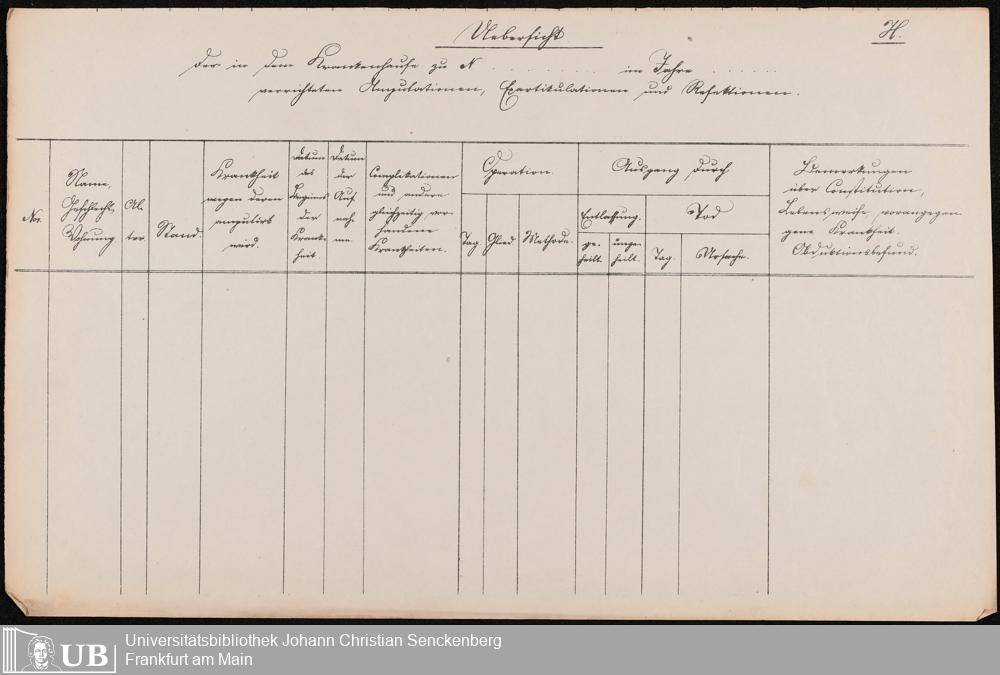 Uebersicht
H.
der in dem Krankenhause zu N . . . . . . . . im Jahre . . . . . .
verrichteten Amputationen, Exartikulationen und Resektionen.
No.
Name,
Geschlecht,
Wohnung.
Al-
ter.
Stand.
Krankheit
wegen deren
amputirt
wird.
Datum
des
Beginns
der
Krank-
heit.
Datum
der
Auf-
nah-
me.
Complikationen
und andere
gleichzeitig vor-
handene
Krankheiten.
Operation.
Tag.
Glied.
Methode.
Ausgang durch
Entlassung.
ge-
heilt.
unge-
heilt.
Tod
Tag.
Ursache.
Bemerkungen
über Constitution,
Lebensweise, vorangegan-
gene Krankheit.
Obduktionsbefund.
UB
Universitätsbibliothek Johann Christian Senckenberg
Frankfurt am Main